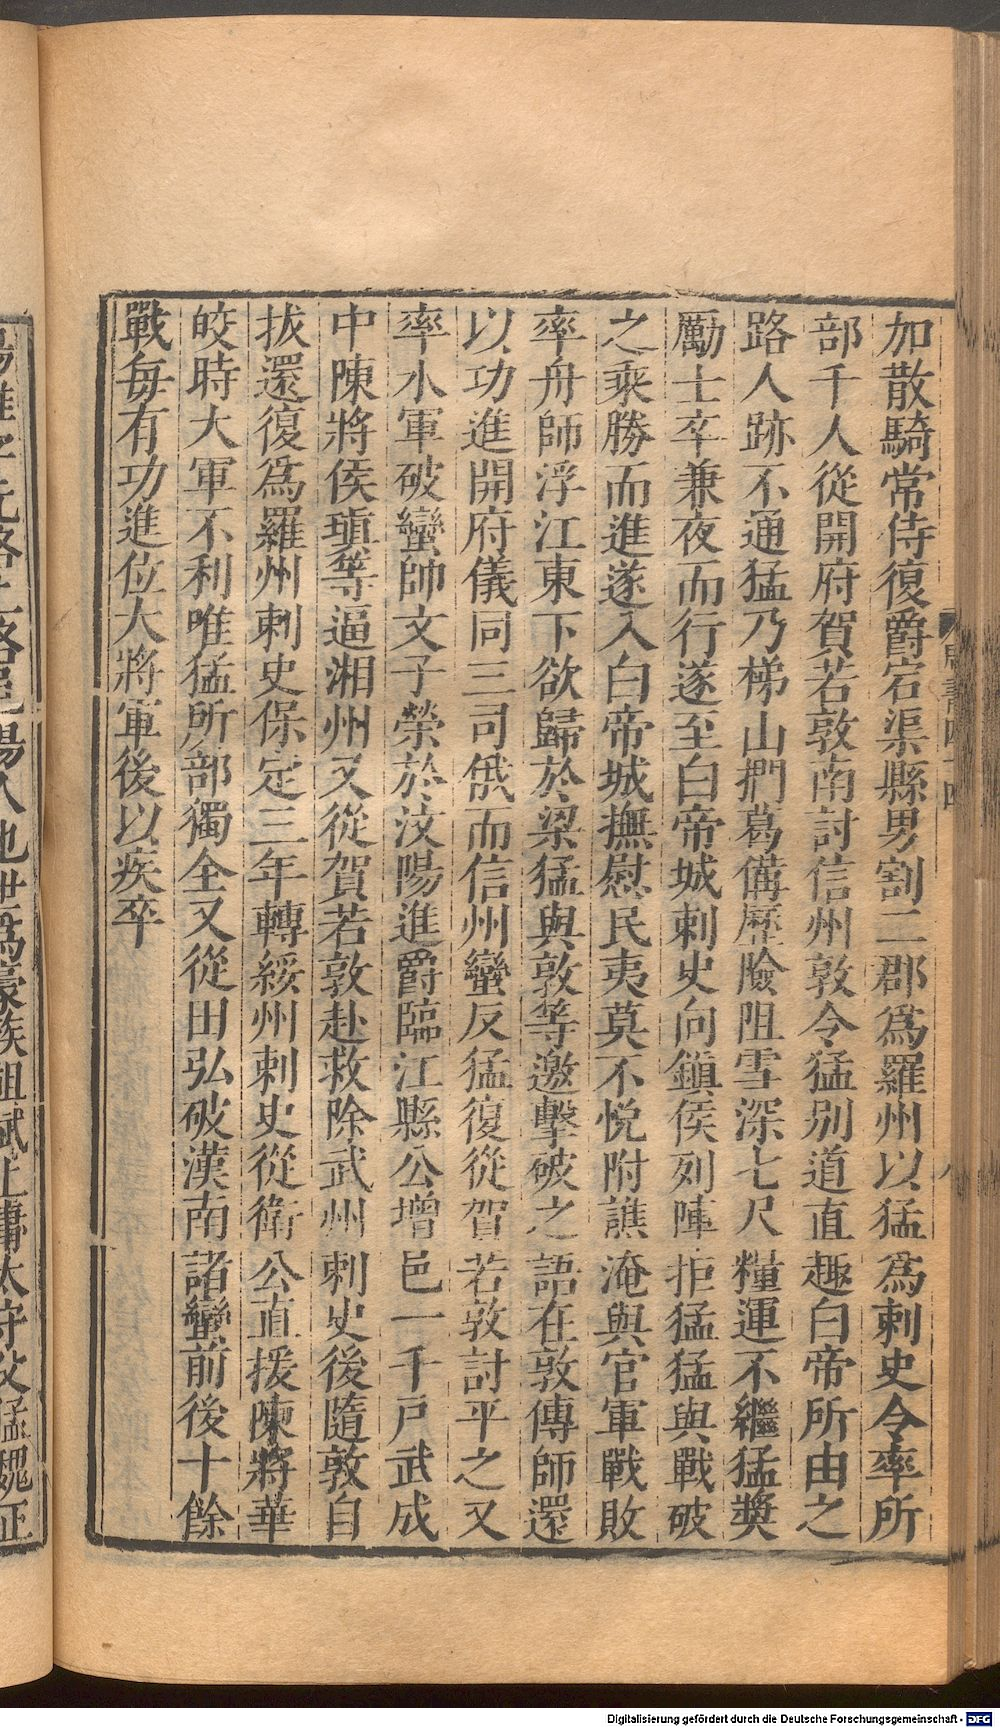 加散騎常侍復爵宕渠縣男割二郡爲羅州以猛爲刺史令率所
部千人從開府賀若敦南討信州敦令猛别道直趣白帝所由之
路人跡不通猛乃梯山捫葛備歷險阻雪深七尺糧運不繼猛獎
勵士卒兼夜而行遂至白帝城刺史向鎮侯列陣拒猛猛與戰破
之乘勝而進遂入白帝城撫慰民夷莫不悅附譙淹與官軍戰敗
率舟師浮江東下欲歸於梁猛與敦等邀擊破之語在敦傳師還
以功進開府儀同三司俄而信州蠻反猛復從賀若敦討平之又
率水軍破蠻帥文子榮於汶陽進爵臨江縣公增邑一千戸武成
中陳將侯瑱等逼湘州又從賀若敦赴救除武州刺史後隨敦自
拔還復爲羅州刺史保定三年轉綏州刺史從衛公直援陳將華
皎時大軍不利唯猛所部獨全又從田弘破漢南諸蠻前後十餘
戰每有功進位大將軍後以疾卒
陽雄字元略上洛邑陽人也世爲豪族祖斌上庸太守父猛魏正
Digitalisierung gefördert durch die Deutsche Forschungsgemeinschaft - DFG